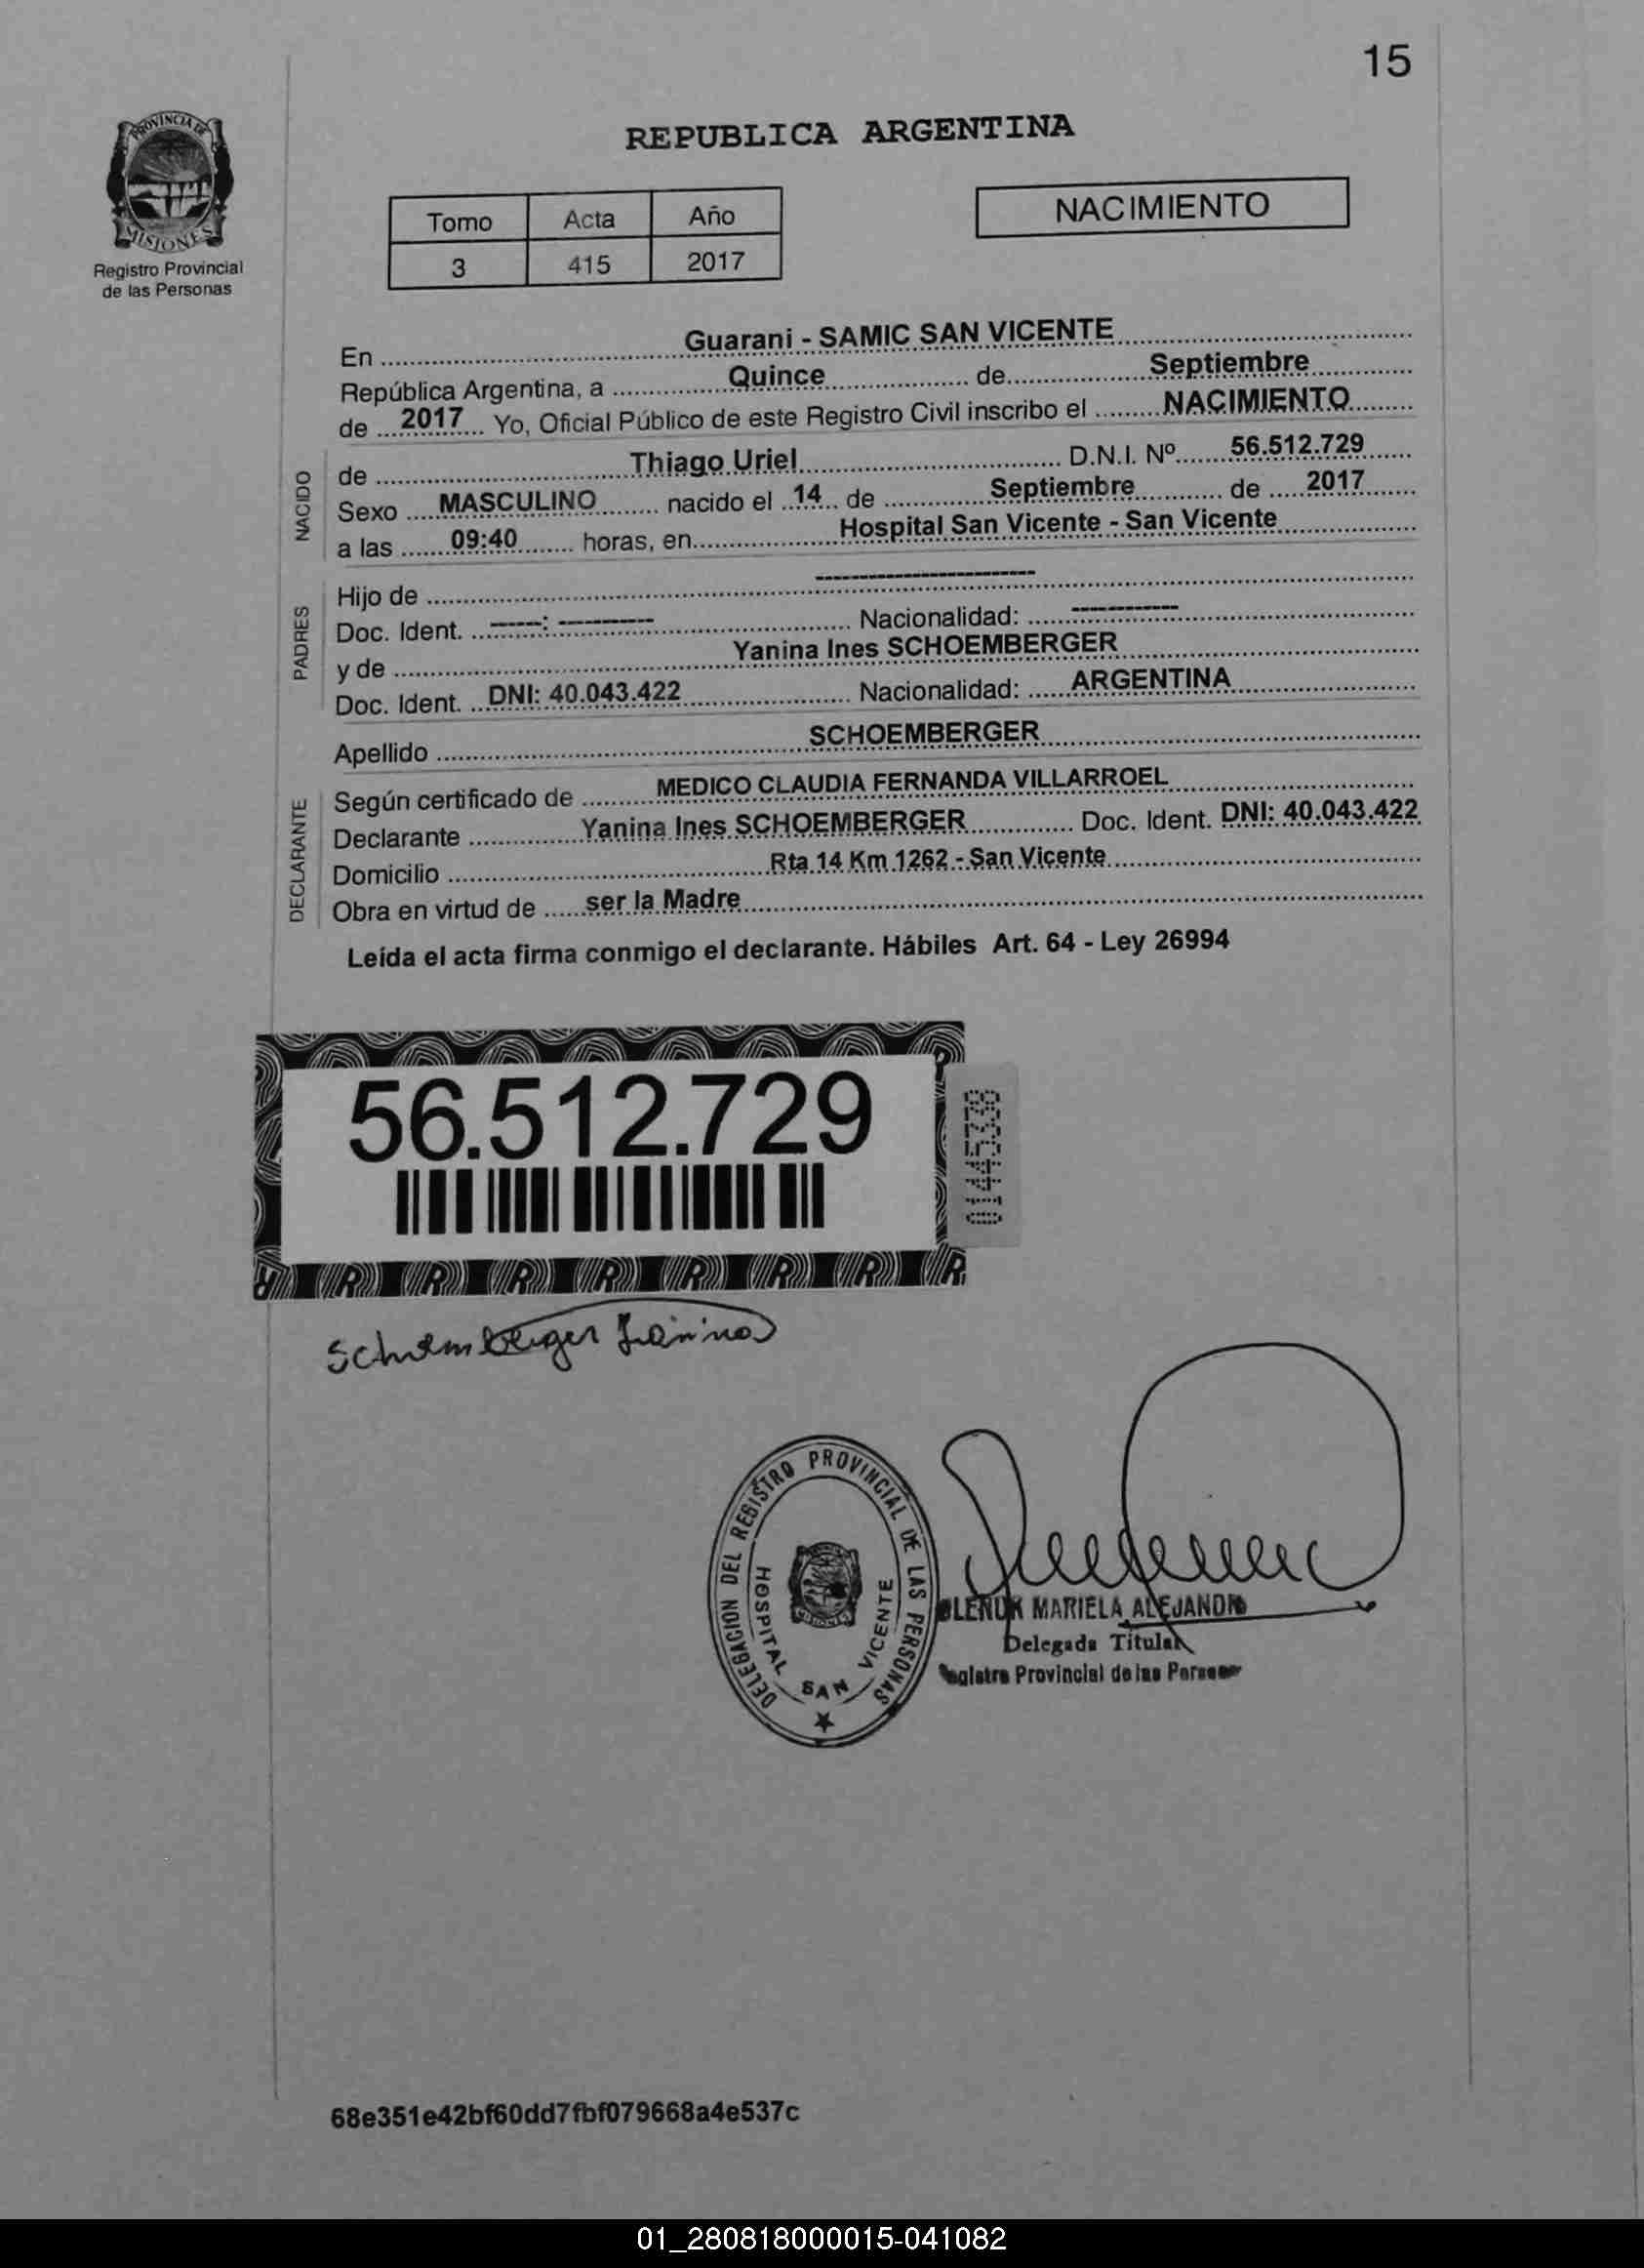 15
PROVINCIA DE
MISIONES
Registro Provincial
de las Personas
REPUBLICA ARGENTINA
Tomo Acta Año
3 415 2017
NACIMIENTO
En Guarani - SAMIC SAN VICENTE
República Argentina, a Quince de Septiembre
de 2017 Yo, Oficial Público de este Registro Civil inscribo el NACIMIENTO
NACIDO
de Thiago Uriel D.N.I. Nº 56.512.729
Sexo MASCULINO nacido el 14 de Septiembre de 2017
a las 09:40 horas, en Hospital San Vicente - San Vicente
PADRES
Hijo de ------------------------
Doc. Ident. -----: ---------- Nacionalidad: -----------
y de Yanina Ines SCHOEMBERGER
Doc. Ident. DNI: 40.043.422 Nacionalidad: ARGENTINA
Apellido SCHOEMBERGER
DECLARANTE
Según certificado de MEDICO CLAUDIA FERNANDA VILLARROEL
Declarante Yanina Ines SCHOEMBERGER Doc. Ident. DNI: 40.043.422
Domicilio Rta 14 Km 1262 - San Vicente
Obra en virtud de ser la Madre
Leída el acta firma conmigo el declarante. Hábiles Art. 64 - Ley 26994
56.512.729
01445338
Schoemberger Yanina
DELEGACION DEL REGISTRO PROVINCIAL DE LAS PERSONAS
HOSPITAL SAN VICENTE
MARIELA
Delegada Titular
Provincial de las
68e351e42bf60dd7fbf079668a4e537c
01_280818000015-041082